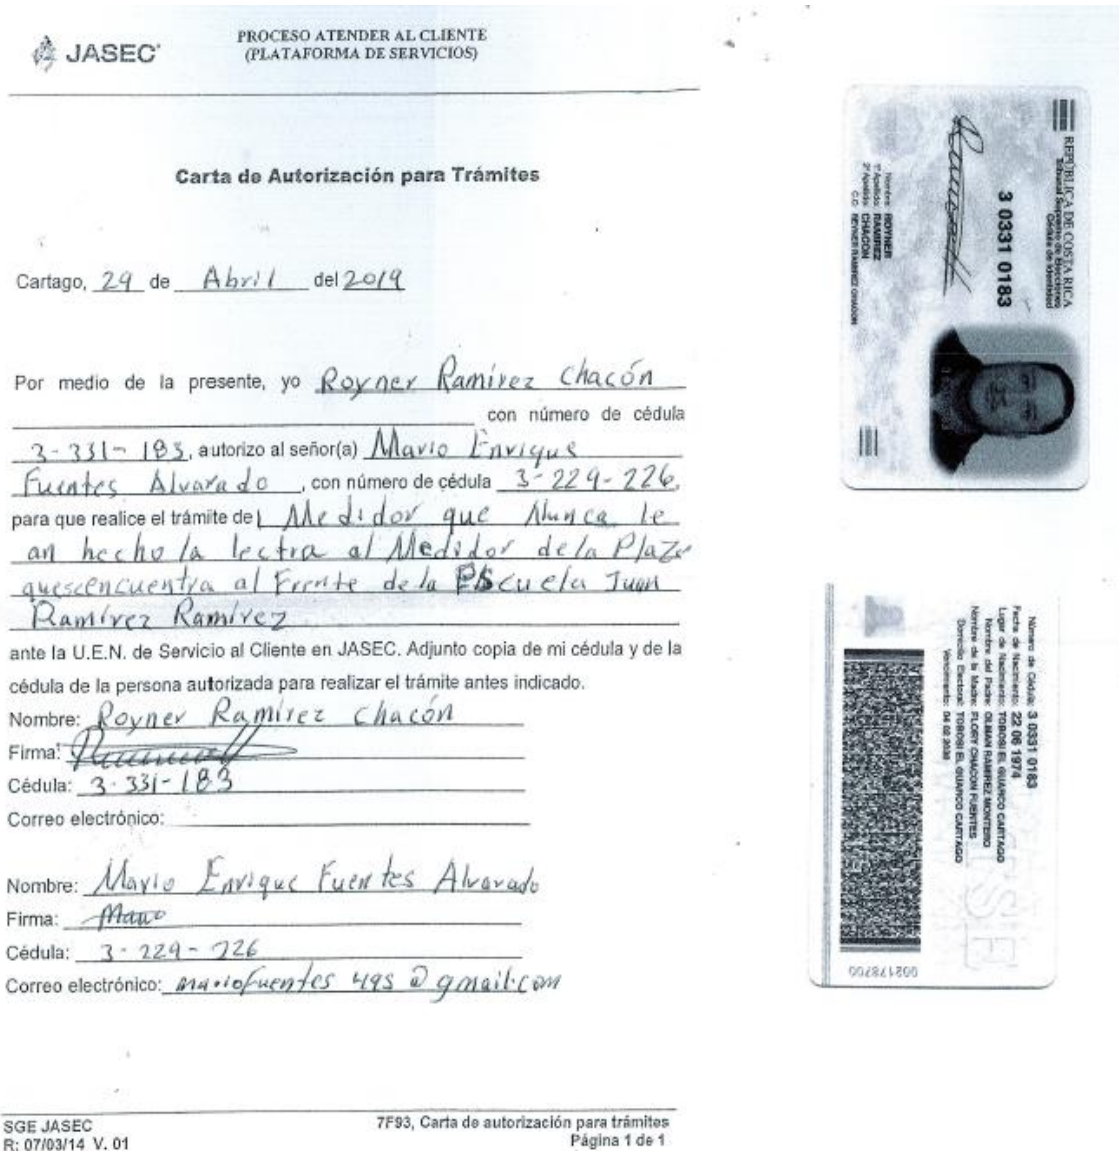 JASEC
PROCESO ATENDER AL CLIENTE
(PLATAFORMA DE SERVICIOS)
Carta de Autorización para Trámites
Cartago, 29 de Abril del 2019
Por medio de la presente, yo Royner Ramírez Chacón
con número de cédula
3-331-183, autorizo al señor(a) Mario Enrique
Fuentes Alvarado, con número de cédula 3-229-226,
para que realice el trámite de Medidor que Nunca le
an hecho la lectra al Medidor de la Plaza
quescencuentra al Frente de la Escuela Juan
Ramírez Ramírez
ante la U.E.N. de Servicio al Cliente en JASEC. Adjunto copia de mi cédula y de la
cédula de la persona autorizada para realizar el trámite antes indicado.
Nombre: Royner Ramírez Chacón
Firma:
Cédula: 3-331-183
Correo electrónico:
Nombre: Mario Enrique Fuentes Alvarado
Firma: Mario
Cédula: 3-229-226
Correo electrónico: mariofuentes495@gmail.com
SGE JASEC
R: 07/03/14 V. 01
7F93, Carta de autorización para trámites
Página 1 de 1
REPÚBLICA DE COSTA RICA
Tribunal Supremo de Elecciones
Cédula de Identidad
3 0331 0183
Nombre: ROYNER
1° Apellido: RAMIREZ
2° Apellido: CHACON
C.C: REYNER RAMIREZ CHACON
Número de Cédula: 3 0331 0183
Fecha de Nacimiento: 22 06 1974
Lugar de Nacimiento: TOBOSI EL GUARCO CARTAGO
Nombre del Padre: OLMAN RAMIREZ MONTERO
Nombre de la Madre: FLORY CHACON FUENTES
Domicilio Electoral: TOBOSI EL GUARCO CARTAGO
Vencimiento:
TSE
002178700